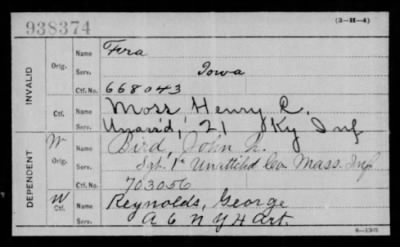 938374
(3-H-4)
INVALID
Orig.
Name Fera
Serv. Iowa
Ctf. No. 668043
Ctf.
Name Moss Henry R.
Serv. Unas'd, 21 Ky Inf
DEPENDENT
W
Orig.
Name Bird, John
Serv. Sgt. 1" Unattchd Co. Mass. Inf
Ctf. No. 703056
W
Ctf.
Name Reynolds, George
Serv. A 6 N Y H Art.